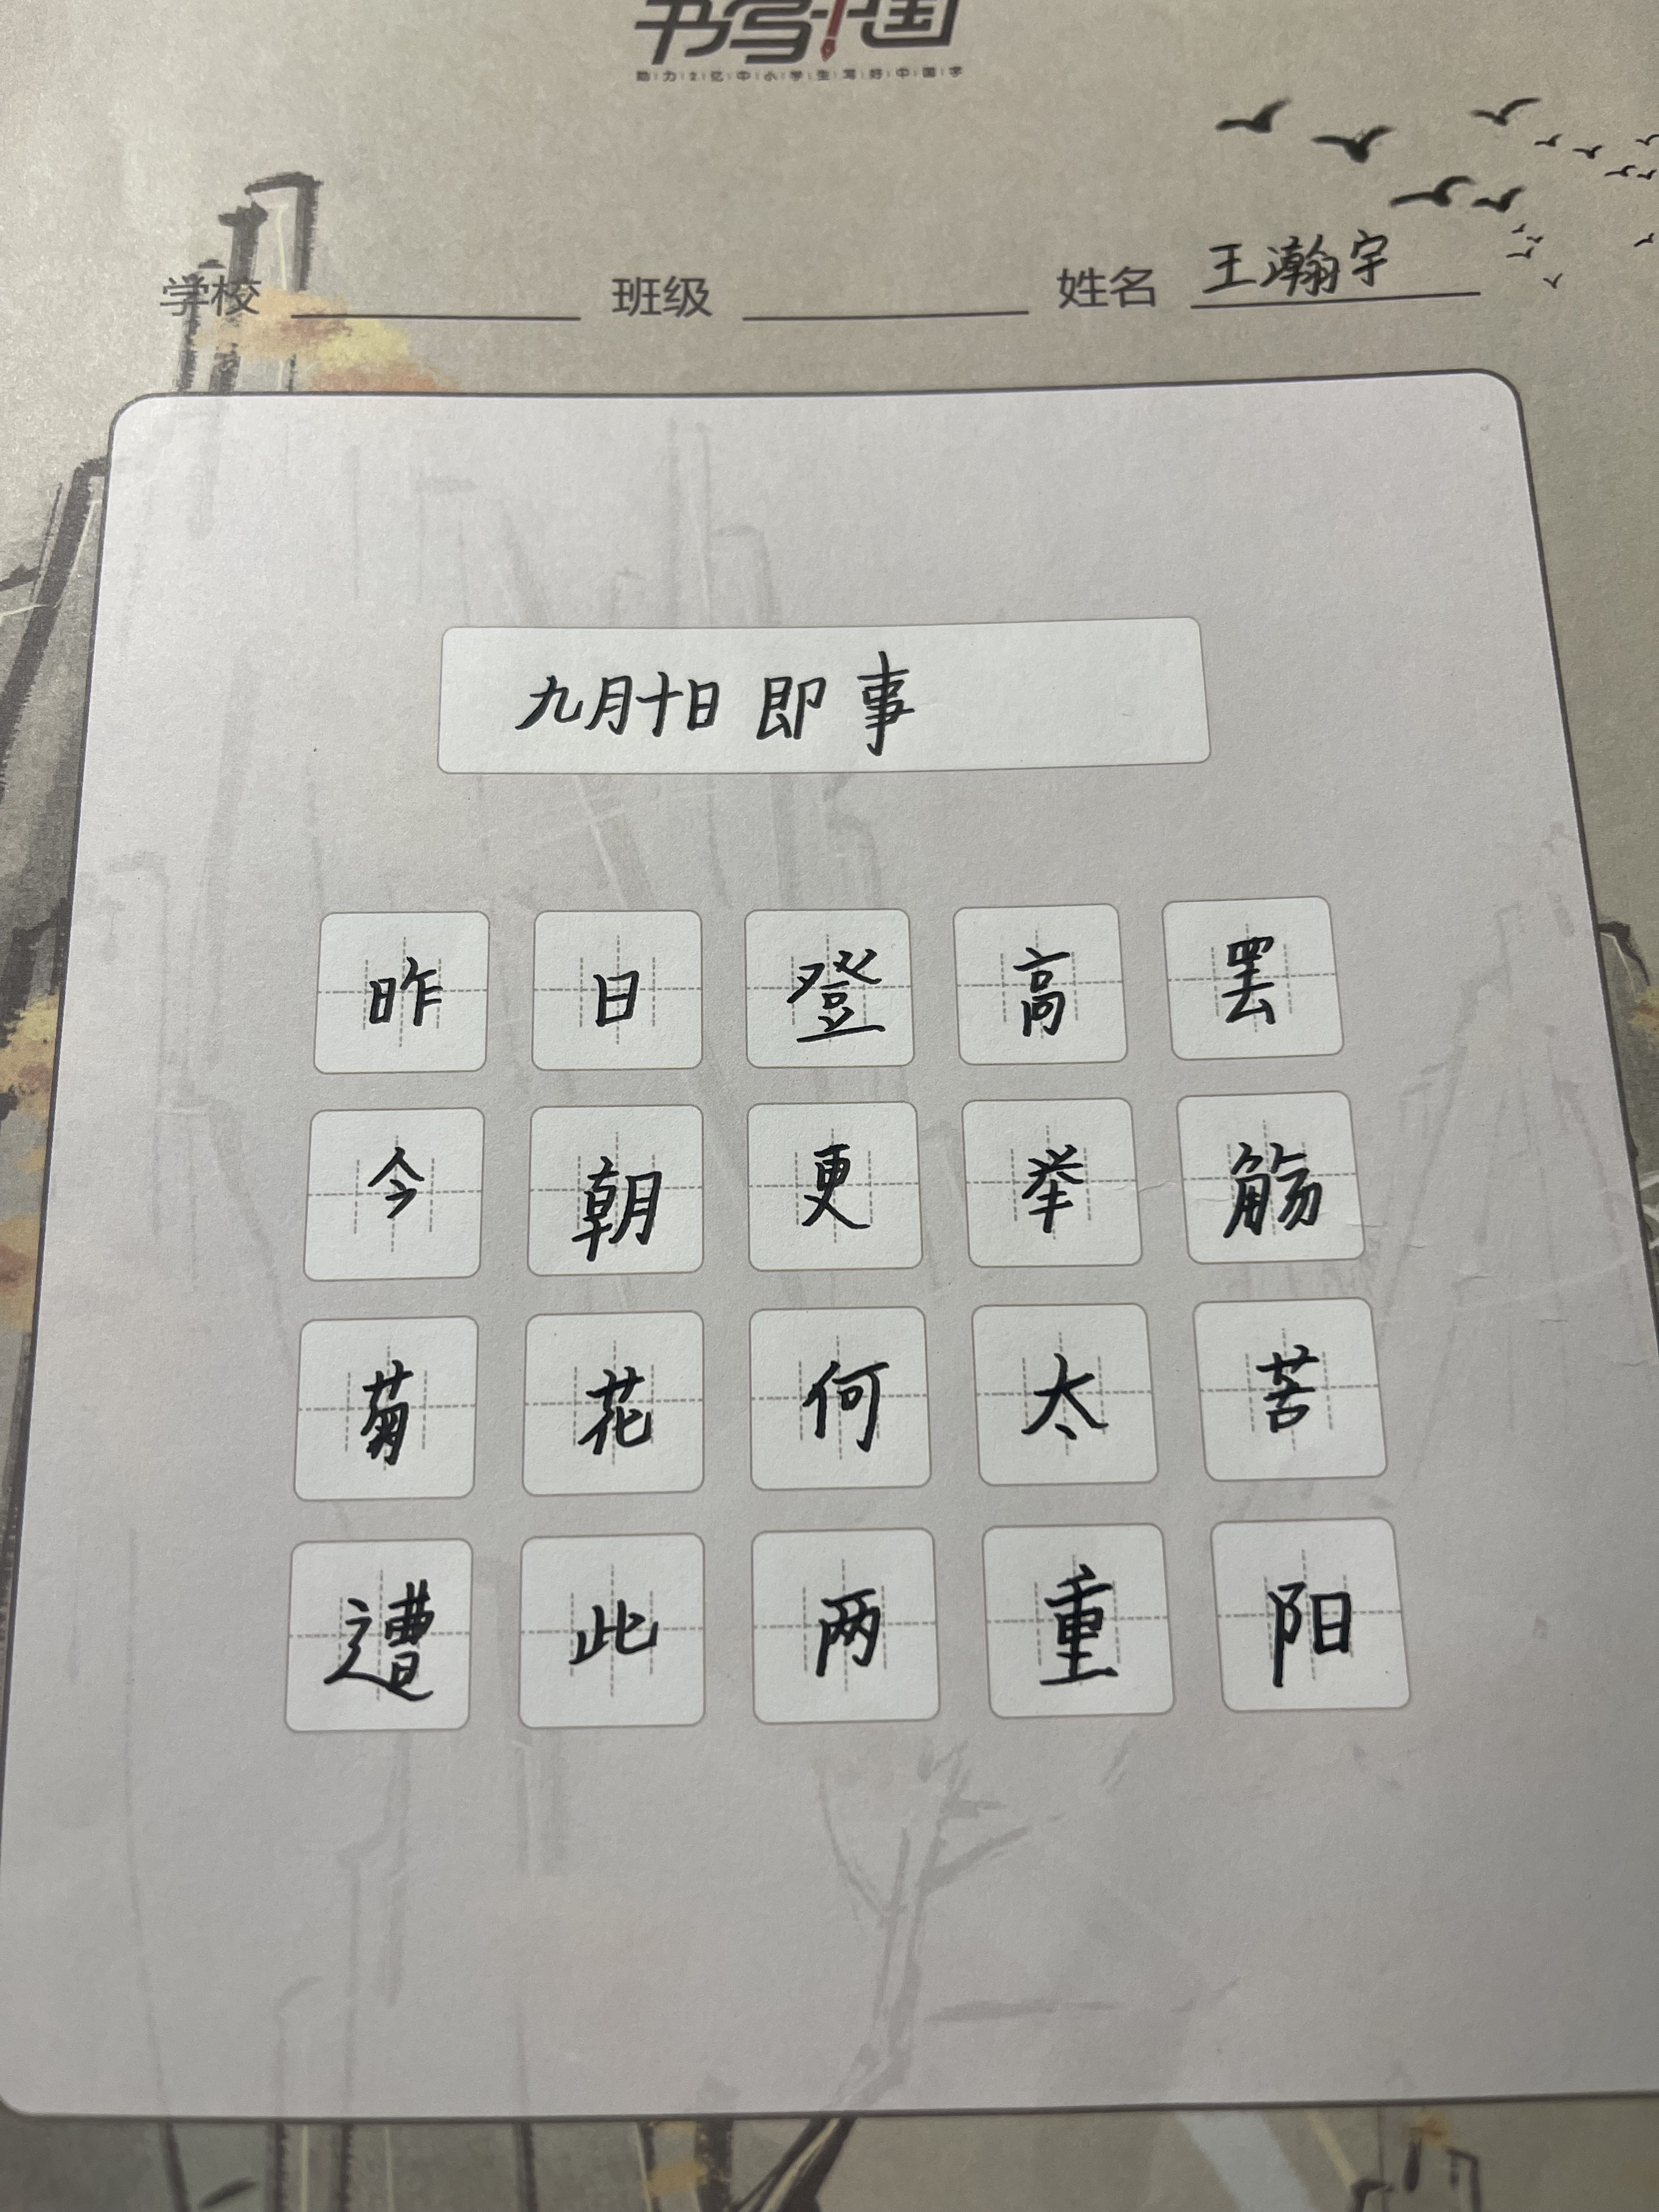 书写中国
助力2亿中小学生写好中国字
学校 班级 姓名 王瀚宇
九月十日即事
昨日登高罢
今朝更举觞
菊花何太苦
遭此两重阳